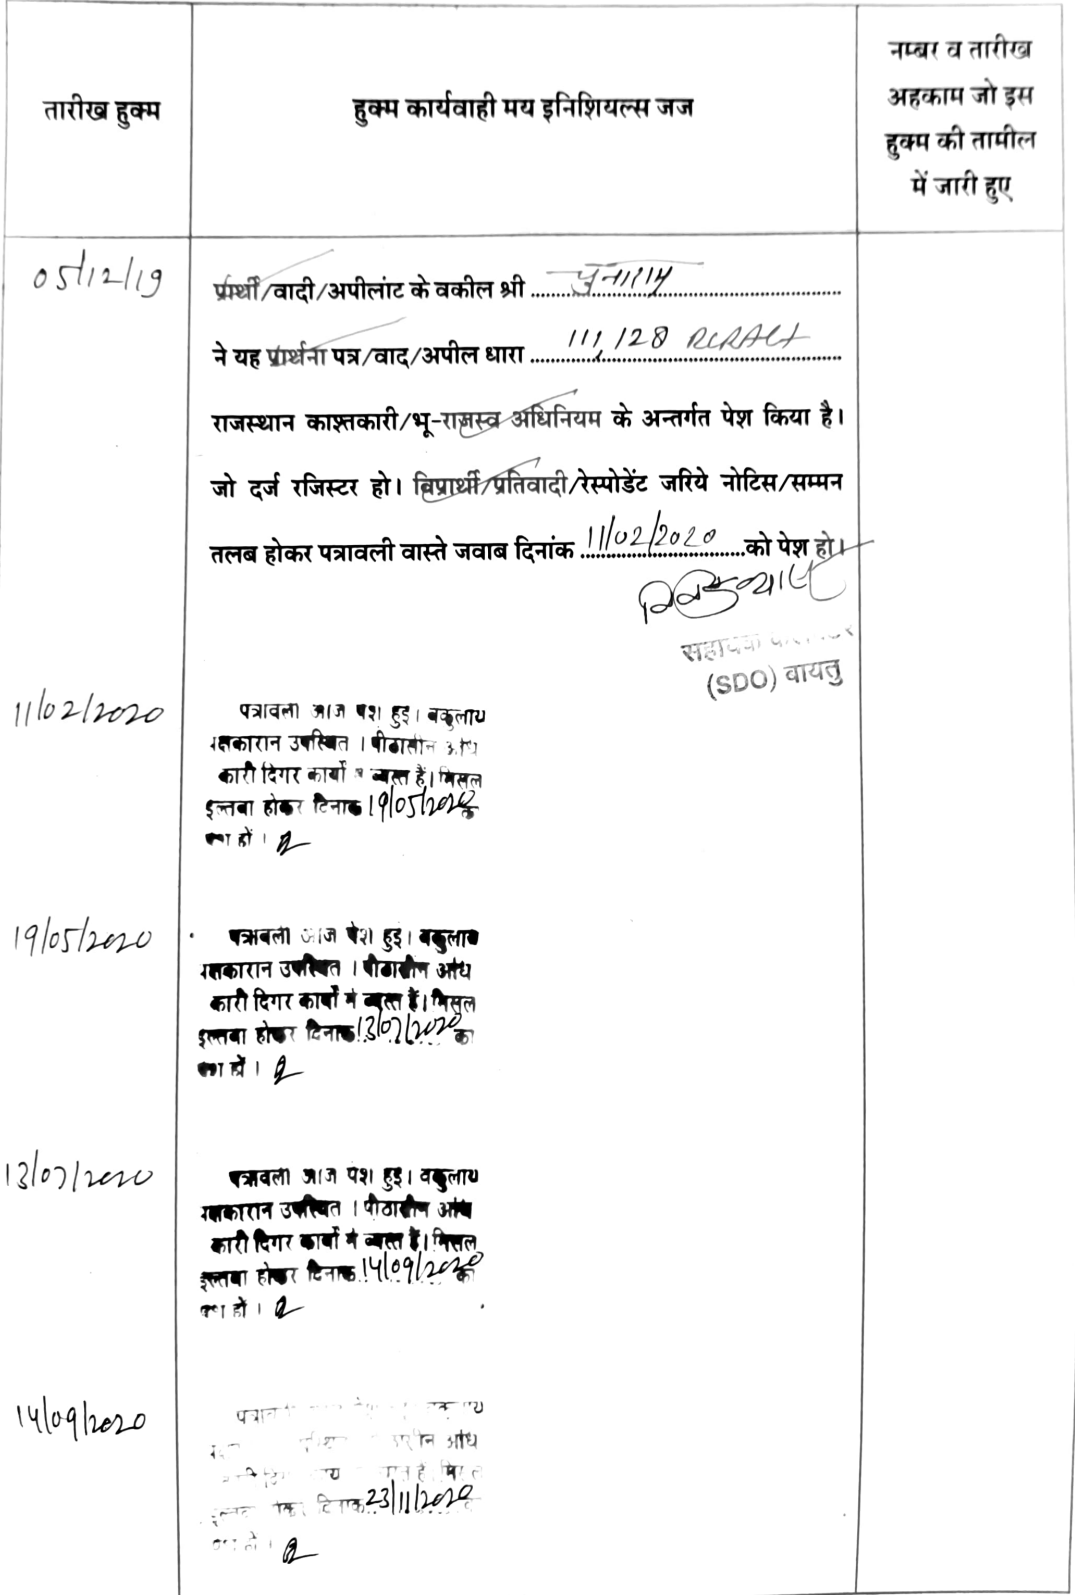 तारीख हुक्म
हुक्म कार्यवाही मय इनिशियल्स जज
नम्बर व तारीख
अहकाम जो इस
हुक्म की तामील
में जारी हुए
05/12/19
प्रार्थी/वादी/अपीलांट के वकील श्री पुनाराम
ने यह प्रार्थना पत्र/वाद/अपील धारा 111, 128 RLRAct
राजस्थान काश्तकारी/भू-राजस्व अधिनियम के अन्तर्गत पेश किया है।
जो दर्ज रजिस्टर हो। विप्रार्थी/प्रतिवादी/रेस्पोडेंट जरिये नोटिस/सम्मन
तलब होकर पत्रावली वास्ते जवाब दिनांक 11/02/2020 को पेश हो।
सहायक
(SDO) वायतु
11/02/2020
पत्रावली आज पेश हुई। वकुलाय
उपस्थित । पीठासीन अधि
कारी दिगर कार्यो में व्यस्त हैं। मिसल
इल्तवा होकर दिनांक 19/05/2020
हों ।
19/05/2020
पत्रावली आज पेश हुई। वकुलाय
उपस्थित । पीठासीन अधि
कारी दिगर कार्यो में व्यस्त हैं। मिसल
इल्तवा होकर दिनांक 13/07/2020 को
हों ।
13/07/2020
पत्रावली आज पेश हुई। वकुलाय
उपस्थित । पीठासीन अधि
कारी दिगर कार्यो में व्यस्त हैं। मिसल
इल्तवा होकर दिनांक 14/09/2020 को
हों ।
14/09/2020
अधि
दिनांक 23/11/2020